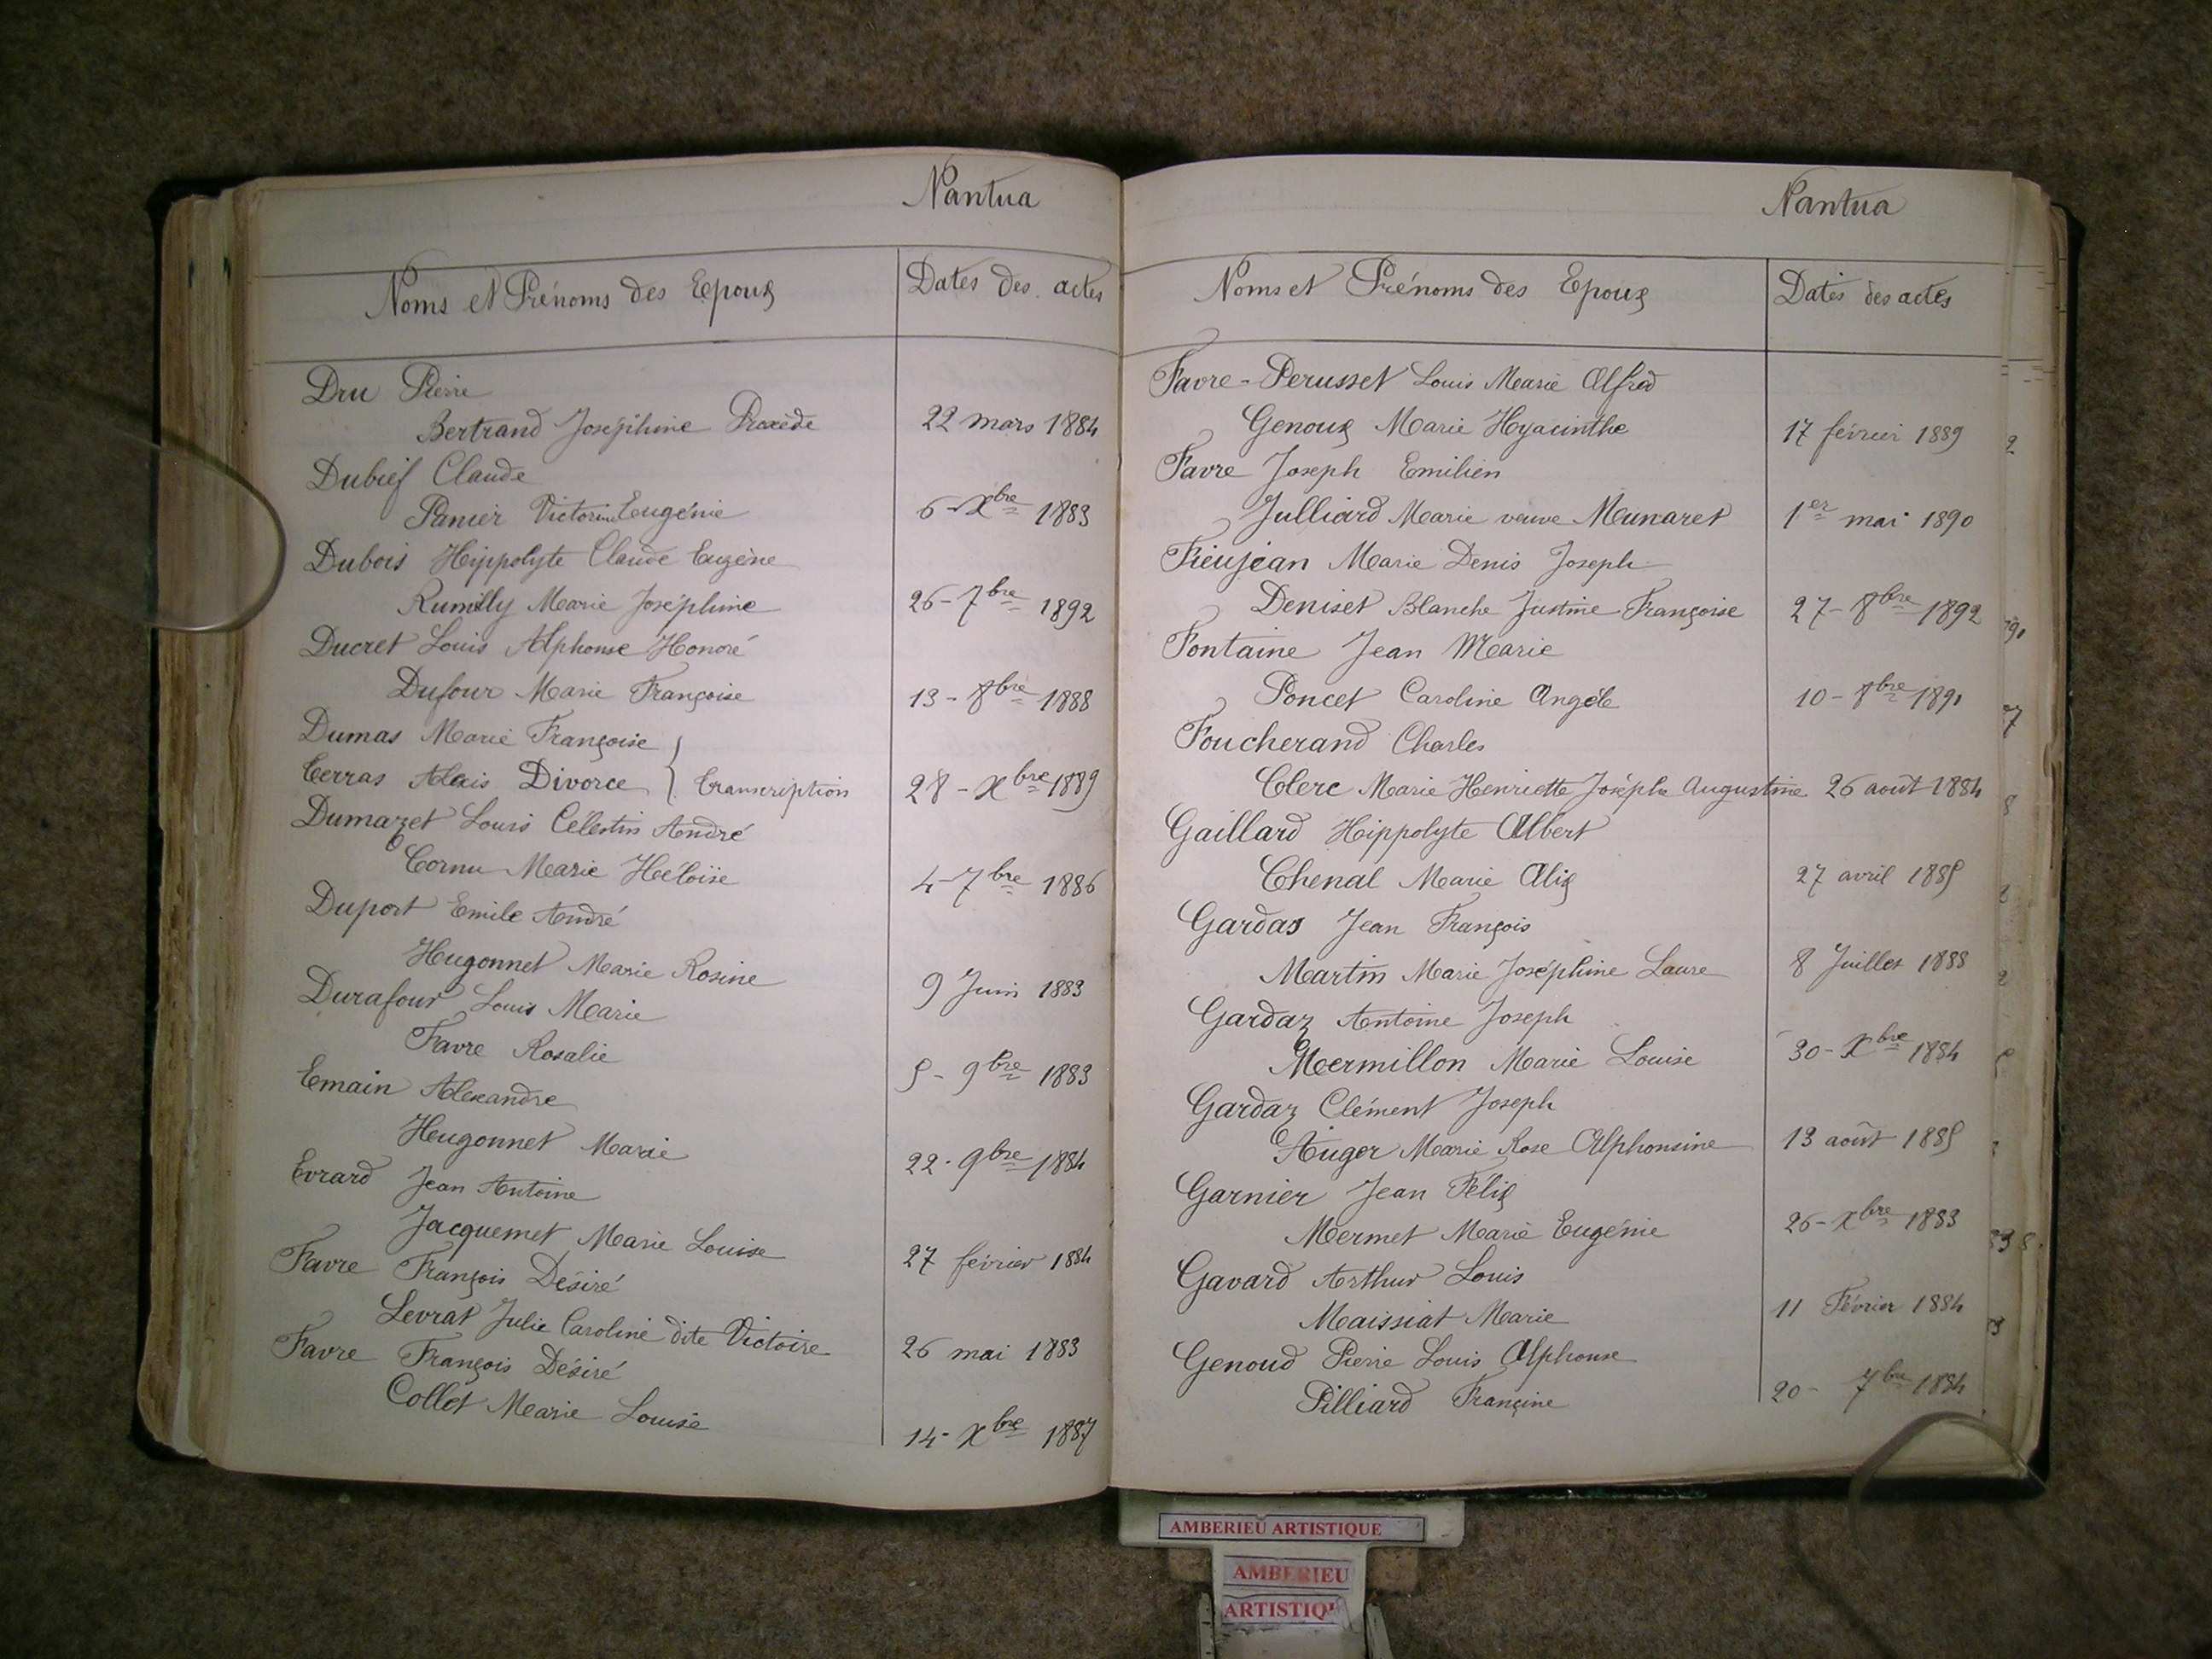 Nantua
Noms et Prénoms des Epoux
Dates des actes
Dru Pierre
Bertrand Joséphine Praxède 22 mars 1884
Dubief Claude
Panier Victorine Eugénie 6 - Xbre 1883
Dubois Hippolyte Claude Eugène
Rumilly Marie Joséphine 26 - 7bre 1892
Ducret Louis Alphonse Honoré
Dufour Marie Françoise 13 - 8bre 1888
Dumas Marie Françoise
Terras Alexis Divorce } transcription 28 - Xbre 1889
Dumazet Louis Célestin André
Cornu Marie Héloïse 4 - 7bre 1886
Duport Emile André
Hugonnet Marie Rosine 9 Juin 1883
Durafour Louis Marie
Favre Rosalie 5 - 9bre 1883
Emain Alexandre
Hugonnet Marie 22 - 9bre 1884
Evrard Jean Antoine
Jacquemet Marie Louise 27 février 1884
Favre François Désiré
Levrat Julie Caroline dite Victoire 26 mai 1883
Favre François Désiré
Collet Marie Louise 14 - Xbre 1887
Nantua
Noms et Prénoms des Epoux
Dates des actes
Favre - Perusset Louis Marie Alfred
Genoux Marie Hyacinthe 17 février 1889
Favre Joseph Emilien
Julliard Marie veuve Munaret 1er mai 1890
Fieujean Marie Denis Joseph
Deniset Blanche Justine Françoise 27 - 8bre 1892
Fontaine Jean Marie
Poncet Caroline Angèle 10 - 8bre 1891
Foucherand Charles
Clerc Marie Henriette Josèphe Augustine 26 août 1884
Gaillard Hippolyte Albert
Chenal Marie Alix 27 avril 1885
Gardas Jean François
Martin Marie Joséphine Laure 8 Juillet 1888
Gardaz Antoine Joseph
Mermillon Marie Louise 30 - Xbre 1884
Gardaz Clément Joseph
Auger Marie Rose Alphonsine 13 août 1885
Garnier Jean Félix
Mermet Marie Eugénie 26 - Xbre 1883
Gavard Arthur Louis
Maissiat Marie 11 Février 1884
Genoud Pierre Louis Alphonse
Pilliard Francine 20 - 7bre 1884
AMBERIEU ARTISTIQUE
AMBERIEU
ARTISTIQU